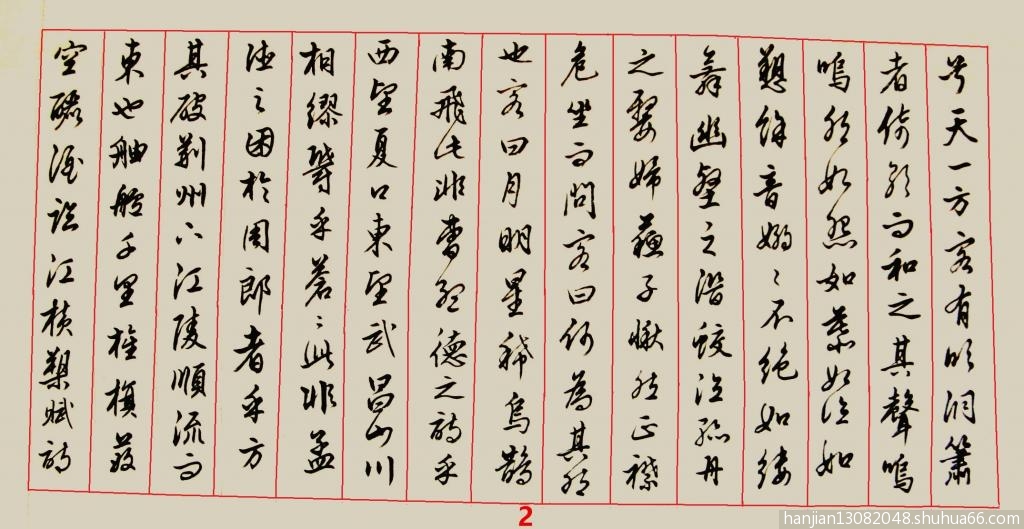 兮天一方客有吹洞簫
者倚歌而和之其聲嗚
嗚然如怨如慕如泣如
愬餘音嫋〻不絕如縷
舞幽壑之潛蛟泣孤舟
之嫠婦蘇子愀然正襟
危坐而問客曰何為其然
也客曰月明星稀烏鵲
南飛此非曹孟德之詩乎
西望夏口東望武昌山川
相繆鬱乎蒼〻此非孟
德之困於周郎者乎方
其破荊州下江陵順流而
東也舳艫千里旌旗蔽
空釃酒臨江橫槊賦詩
2
hanjian13082048.shuhua66.com